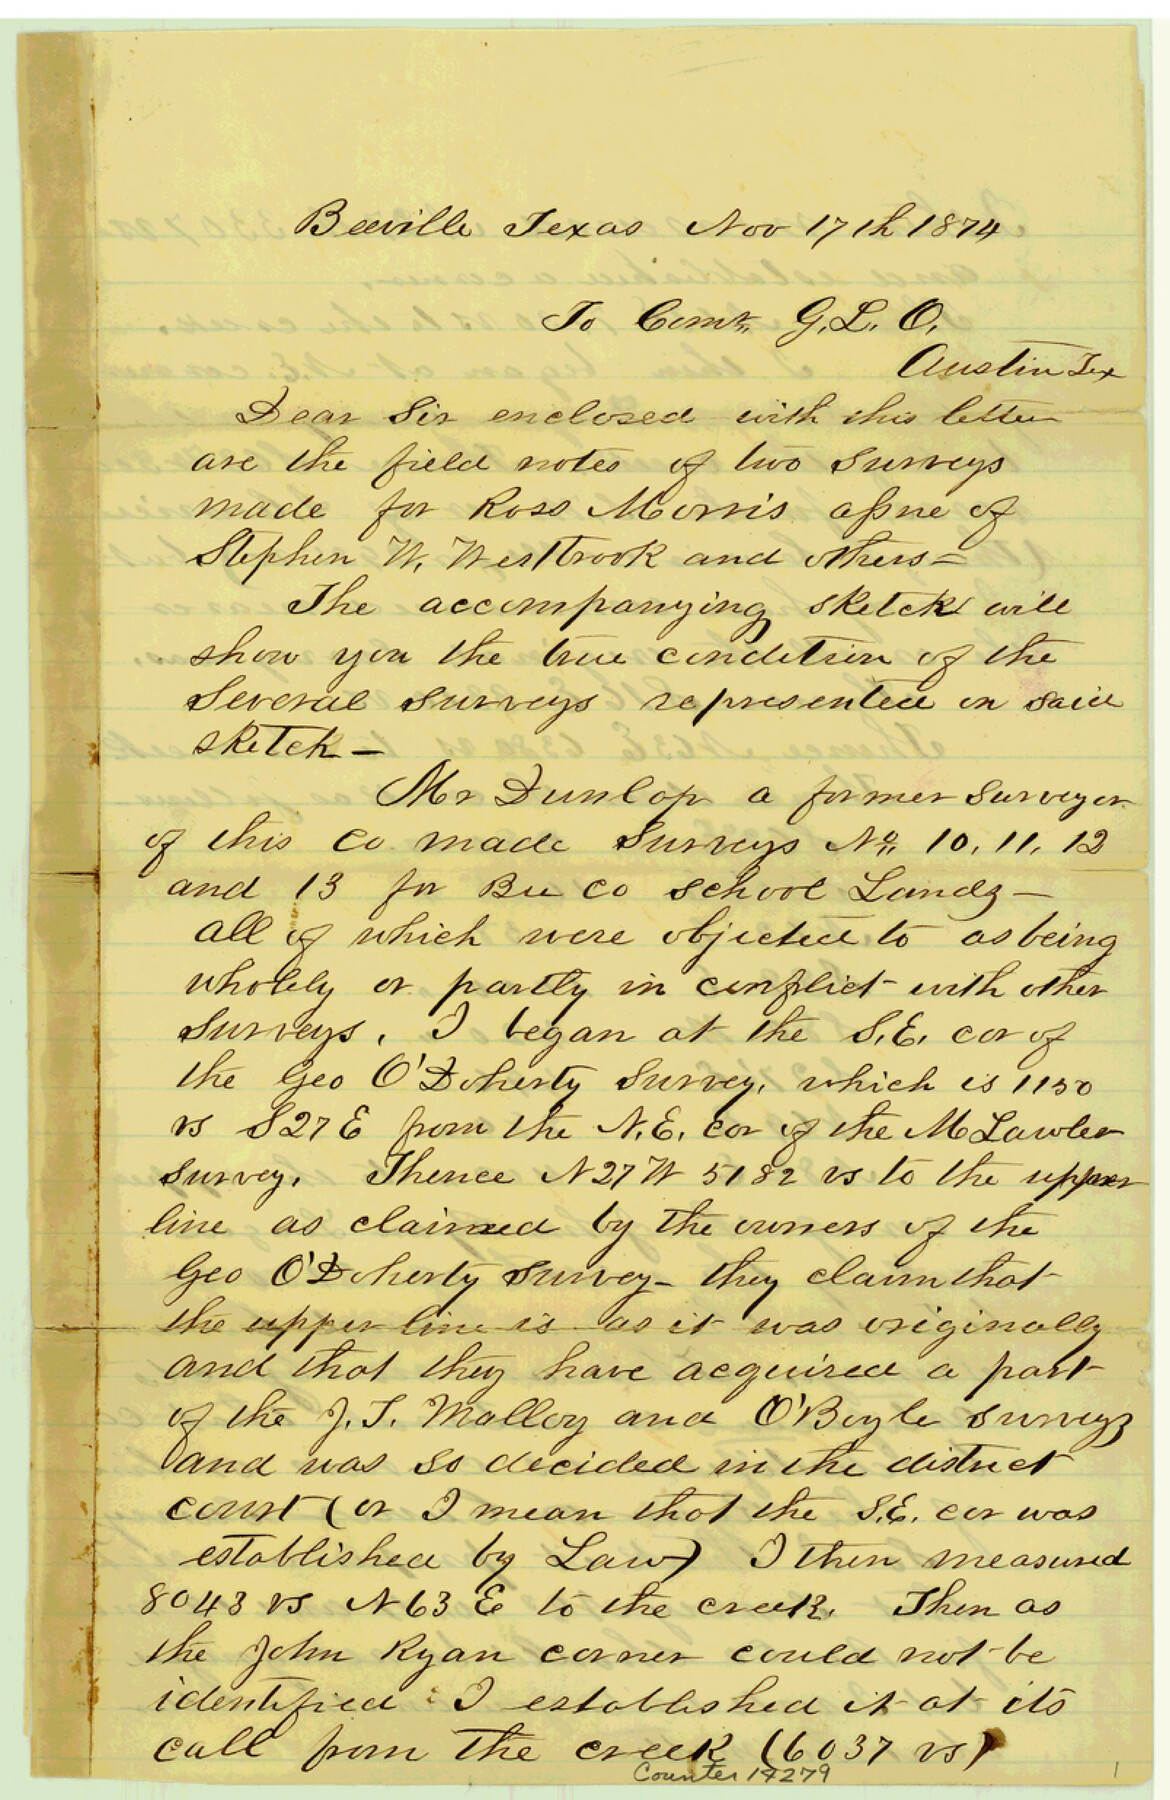 Beeville Texas Nov 17th 1874
To Comr. G. L. O.
Austin Tex
Dear Sir enclosed with this letter
are the field notes of two surveys
made for Ross Morris assne of
Stephen W. Westbrook and others –
The accompanying sketch will
show you the true condition of the
several surveys represented on said
sketch –
Mr Dunlop a former surveyor
of this Co made Surveys No. 10, 11, 12
and 13 for Bee Co School Lands –
all of which were objected to as being
wholely or partly in conflict with other
surveys. I began at the S.E. cor of
the Geo O'Doherty Survey, which is 1150
vs S27E from the N.E. cor of the M Lawler
survey. Thence N27W 5182 vs to the upper
line as claimed by the owners of the
Geo O'Doherty survey – they claim that
the upper line is as it was originally
and that they have acquired a part
of the J. T. Malloy and O'Boyle surveys
and was so decided in the district
court (or I mean that the S.E. cor was
established by Law) I then measured
8043 vs N63E to the creek. Then as
the John Ryan corner could not be
identified I established it at its
call from the creek (6037 vs)
Counter 14279
1